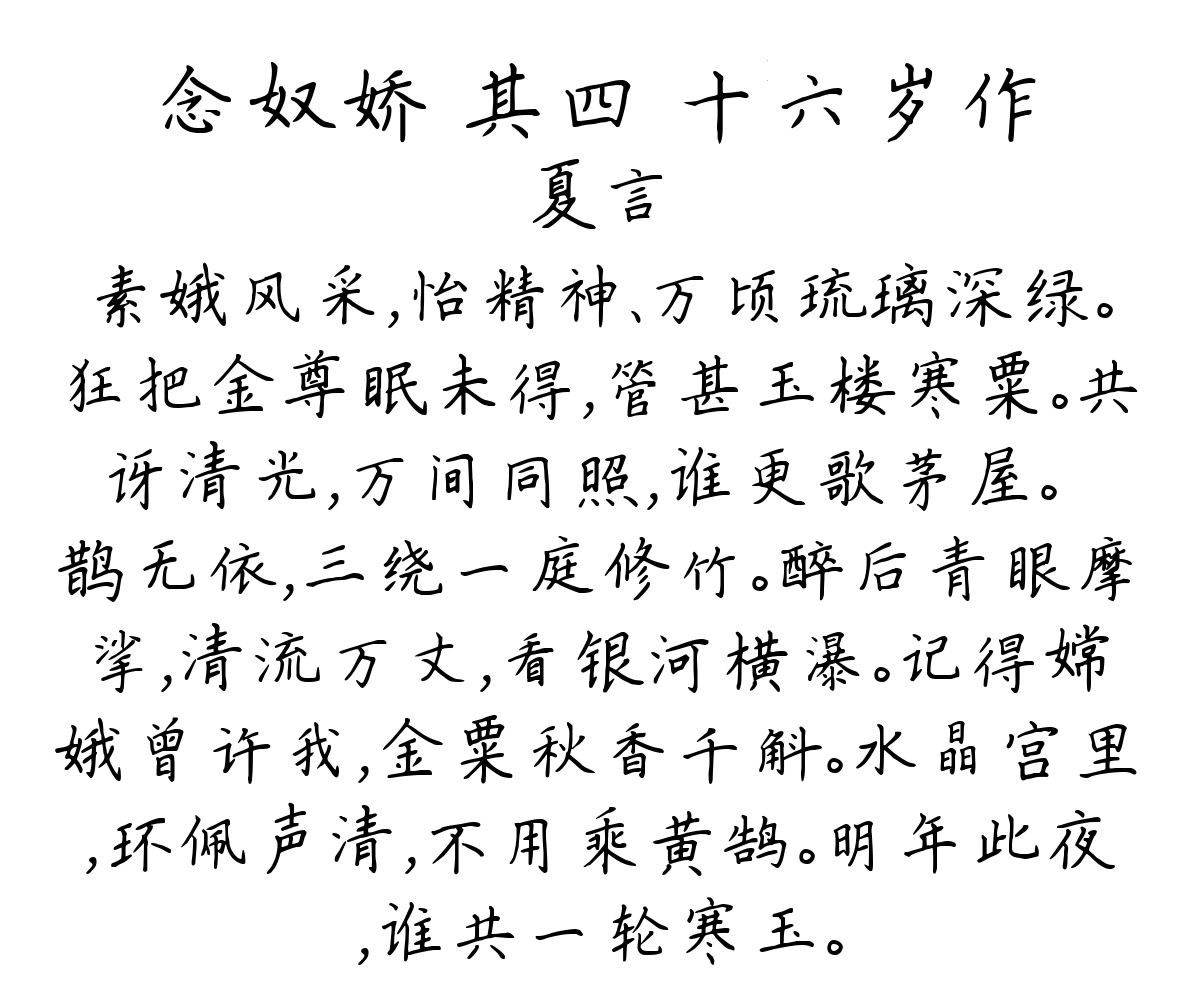 念奴娇 其四 十六岁作
夏言
素娥风采,怡精神、万顷琉璃深绿。
狂把金尊眠未得,管甚玉楼寒粟。共
讶清光,万间同照,谁更歌茅屋。
鹊无依,三绕一庭修竹。醉后青眼摩
挲,清流万丈,看银河横瀑。记得嫦
娥曾许我,金粟秋香千斛。水晶宫里
,环佩声清,不用乘黄鹄。明年此夜
,谁共一轮寒玉。